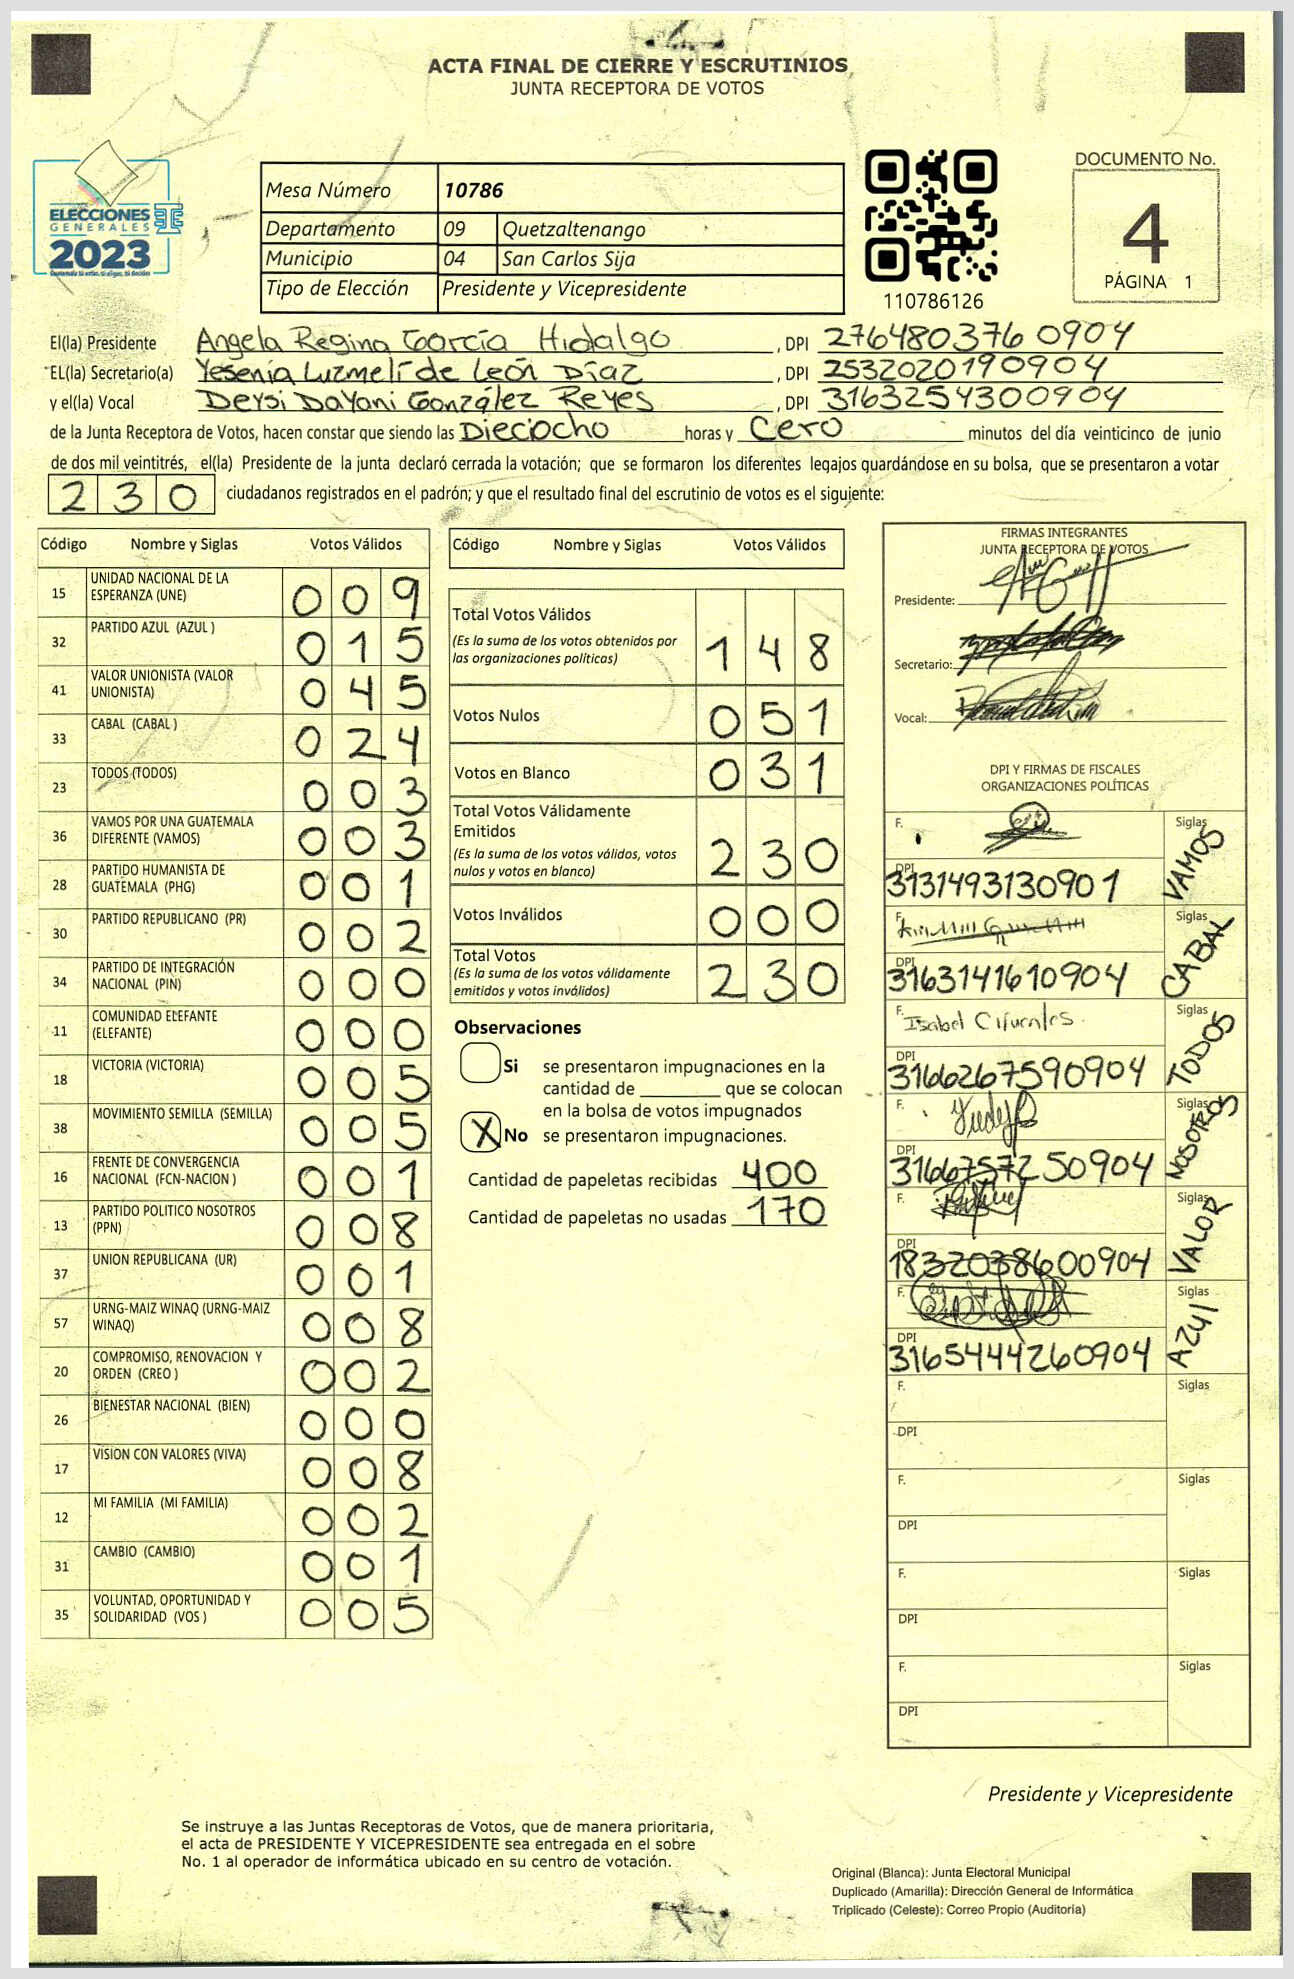 ACTA FINAL DE CIERRE Y ESCRUTINIOS
JUNTA RECEPTORA DE VOTOS
ELECCIONES
GENERALES
2023
Guatemala tú estás, tú eliges, tú decides
Mesa Número 10786
Departamento 09 Quetzaltenango
Municipio 04 San Carlos Sija
Tipo de Elección Presidente y Vicepresidente
110786126
DOCUMENTO No.
4
PÁGINA 1
El(la) Presidente Angela Regina García Hidalgo , DPI 2764803760904
EL(la) Secretario(a) Yesenia Luzmelí de León Díaz , DPI 2532020190904
y el(la) Vocal Deysi Dayani González Reyes , DPI 3163254300904
de la Junta Receptora de Votos, hacen constar que siendo las Dieciocho horas y Cero minutos del día veinticinco de junio
de dos mil veintitrés, el(la) Presidente de la junta declaró cerrada la votación; que se formaron los diferentes legajos guardándose en su bolsa, que se presentaron a votar
230 ciudadanos registrados en el padrón; y que el resultado final del escrutinio de votos es el siguiente:
Código Nombre y Siglas Votos Válidos
15 UNIDAD NACIONAL DE LA ESPERANZA (UNE) 009
32 PARTIDO AZUL (AZUL ) 015
41 VALOR UNIONISTA (VALOR UNIONISTA) 045
33 CABAL (CABAL ) 024
23 TODOS (TODOS) 003
36 VAMOS POR UNA GUATEMALA DIFERENTE (VAMOS) 003
28 PARTIDO HUMANISTA DE GUATEMALA (PHG) 001
30 PARTIDO REPUBLICANO (PR) 002
34 PARTIDO DE INTEGRACIÓN NACIONAL (PIN) 000
11 COMUNIDAD ELEFANTE (ELEFANTE) 000
18 VICTORIA (VICTORIA) 005
38 MOVIMIENTO SEMILLA (SEMILLA) 005
16 FRENTE DE CONVERGENCIA NACIONAL (FCN-NACION ) 001
13 PARTIDO POLITICO NOSOTROS (PPN) 008
37 UNION REPUBLICANA (UR) 001
57 URNG-MAIZ WINAQ (URNG-MAIZ WINAQ) 008
20 COMPROMISO, RENOVACION Y ORDEN (CREO ) 002
26 BIENESTAR NACIONAL (BIEN) 000
17 VISION CON VALORES (VIVA) 008
12 MI FAMILIA (MI FAMILIA) 002
31 CAMBIO (CAMBIO) 001
35 VOLUNTAD, OPORTUNIDAD Y SOLIDARIDAD (VOS ) 005
Código Nombre y Siglas Votos Válidos
Total Votos Válidos
(Es la suma de los votos obtenidos por
las organizaciones políticas) 148
Votos Nulos 051
Votos en Blanco 031
Total Votos Válidamente
Emitidos
(Es la suma de los votos válidos, votos
nulos y votos en blanco) 230
Votos Inválidos 000
Total Votos
(Es la suma de los votos válidamente
emitidos y votos inválidos) 230
Observaciones
Si se presentaron impugnaciones en la
cantidad de ________ que se colocan
en la bolsa de votos impugnados
X No se presentaron impugnaciones.
Cantidad de papeletas recibidas 400
Cantidad de papeletas no usadas 170
FIRMAS INTEGRANTES
JUNTA RECEPTORA DE VOTOS
Presidente:
Secretario:
Vocal:
DPI Y FIRMAS DE FISCALES
ORGANIZACIONES POLÍTICAS
F. Siglas VAMOS
DPI 3131493130901
F. Siglas CABAL
DPI 3163141610904
F. Isabel Cifuentes. Siglas TODOS
DPI 3166267590904
F. Siglas NOSOTROS
DPI 3166757250904
F. Siglas VALOR
DPI 1832038600904
F. Siglas AZUL
DPI 3165444260904
F. Siglas
DPI
F. Siglas
DPI
F. Siglas
DPI
F. Siglas
DPI
Presidente y Vicepresidente
Se instruye a las Juntas Receptoras de Votos, que de manera prioritaria,
el acta de PRESIDENTE Y VICEPRESIDENTE sea entregada en el sobre
No. 1 al operador de informática ubicado en su centro de votación.
Original (Blanca): Junta Electoral Municipal
Duplicado (Amarilla): Dirección General de Informática
Triplicado (Celeste): Correo Propio (Auditoría)